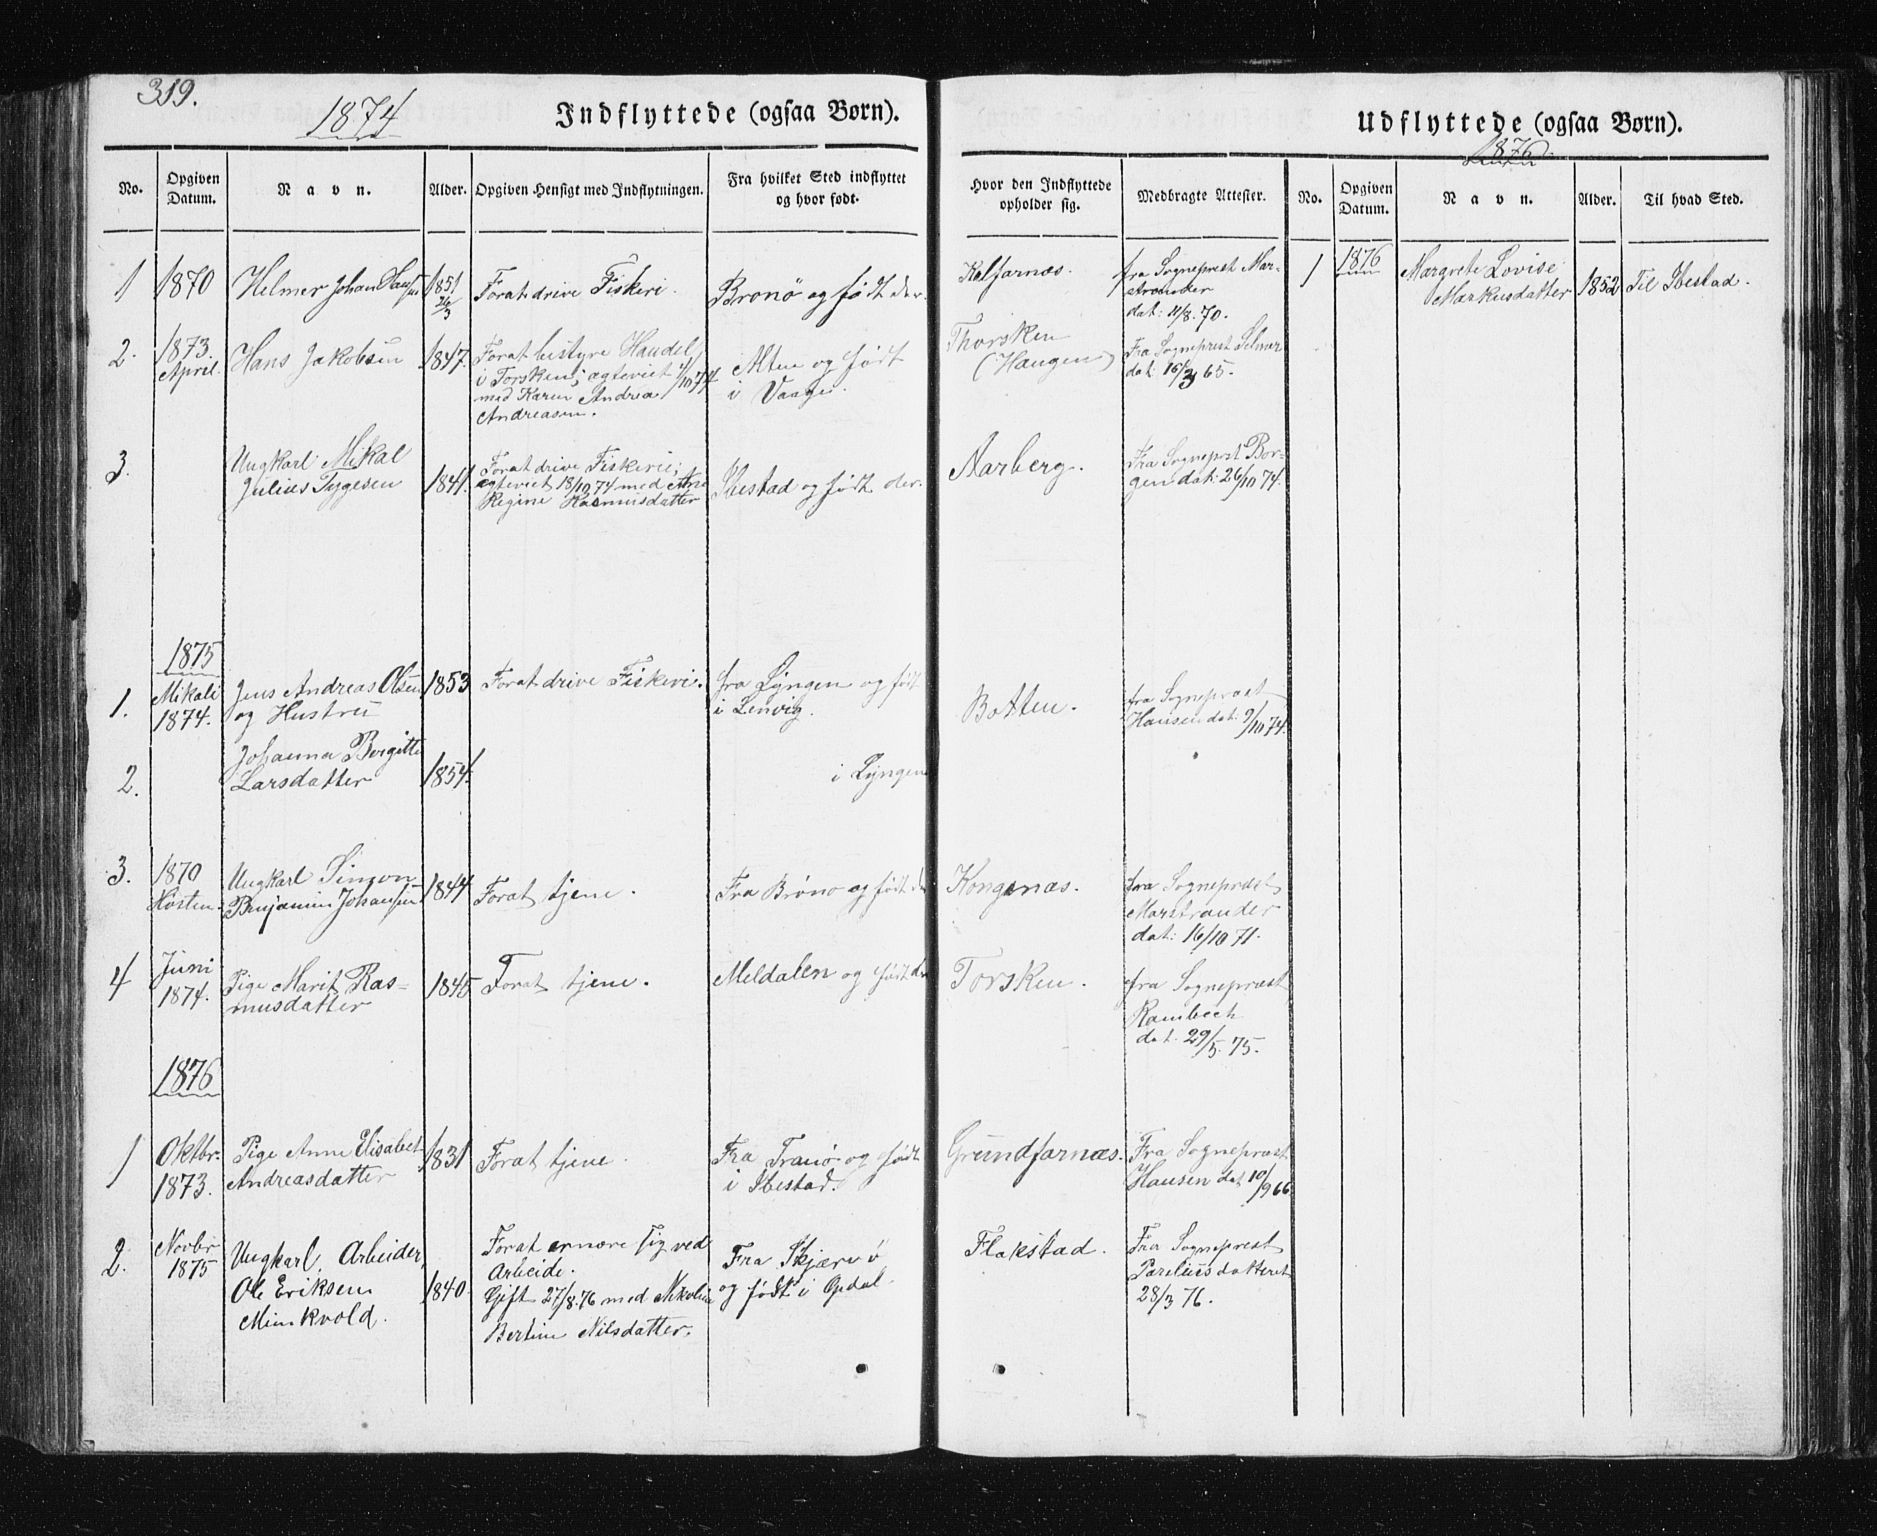 319.
1874
Indflyttede (ogsaa Børn).
No.
Opgiven Datum.
Navn.
Alder.
Opgiven Hensigt med Indflytningen.
Fra hvilket Sted indflyttet og hvor født.
Hvor den Indflyttede opholder sig.
Medbragte Attester.
1
1870
Helmer Johan Hansen
1851
26/3
For at drive Fiskeri.
Brønø og født der.
Kalfarnæs.
fra Sogneprest Mar-
strander
dat: 11/8. 70.
2.
1873.
April.
Hans Jakobsen
1847.
For at bestyre Handel
i Torsken; ægteviet 1/10 74
med Karen Andrea
Andreasen.
Alten og født
i Vaage.
Thorsken
(Haugen)
Fra Sogneprest Selmer
dat: 16/3 65.
3.
Ungkarl Mikal
Julius Tygesen
1841.
For at drive Fiskerie;
ægteviet 18/10 74 med Ane
Regine Rasmusdatter
Ibestad og født der.
Aarberg.
Fra Sogneprst Bor-
gen dat: 26/10 74.
1875
1.
Mikali
1874.
Jens Andreas Olsen
og Hustru
1853
For at drive Fiskeri.
fra Lyngen og født
i Lenvig.
Botten.
fra Sognepræst
Hansen dat: 9/10 74.
2.
Johanna Bergitte
Larsdatter
1854.
i Lyngen
3.
1870
Høsten.
Ungkarl Simon
Benjamin Johansen
1844
For at tjene.
Fra Brønø og født der
Kongsnæs.
fra Sognepræst
Marstrander
dat: 16/10 71.
4
Juni
1874.
Pige Marit Ras-
musdatter
1845
For at tjene.
Meldalen og født der
Torsken.
fra Sognepræst
Rambech
dat. 29/5. 75.
1876
1
Oktbr.
1873.
Pige Anne Elisabet
Andreasdatter
1831
For at tjene.
Fra Tranø og født
i Ibestad.
Grundfarnæs.
Fra Sogneprest
Hausen dat 10/9 66
2.
Novbr
1875
Ungkarl, Arbeider,
Ole Eriksen
Minkvold.
1840.
For at ernære sig ved
Arbeide.
Gift 27/8. 76 med Nikoline
Bertine Nilsdatter.
Fra Skjærvø
og født i Opdal.
Flakstad.
Fra Sogneprest
Parelius datteret
28/3 76.
Udflyttede (ogsaa Børn).
1876.
No.
Opgiven Datum.
Navn.
Alder.
Til hvad Sted.
1
1876
Margrete Lovise
Markusdatter
1852
Til Ibestad.